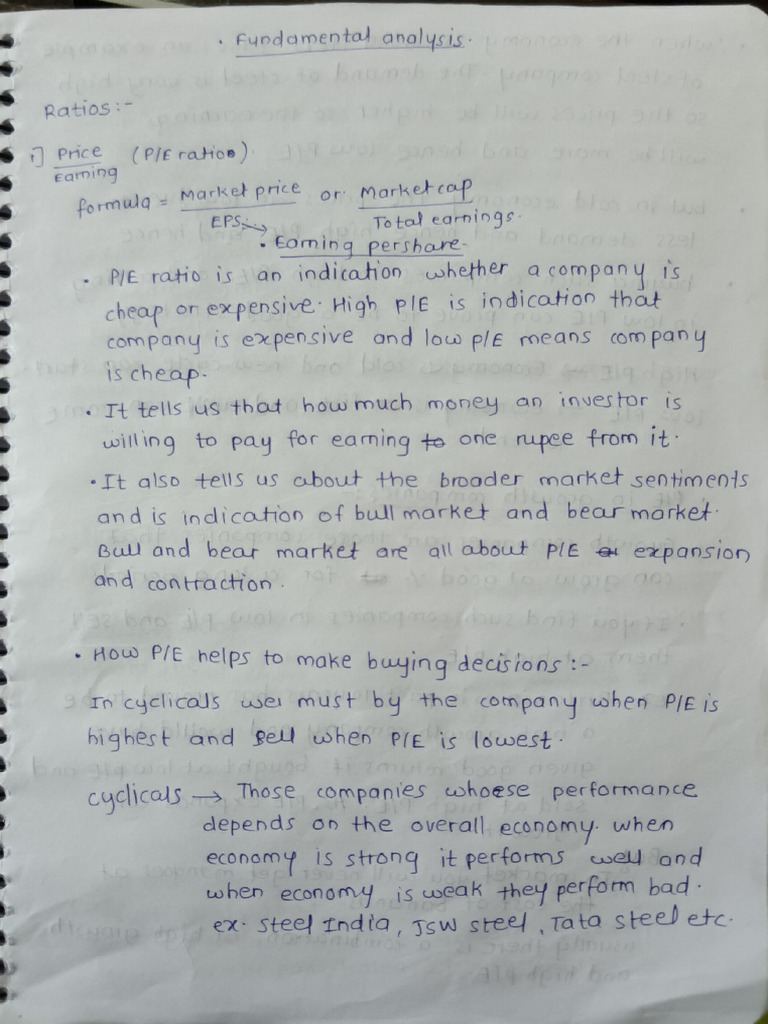 • Fundamental analysis.
Ratios :-
1] Price / Earning (P/E ratio)
formula = Market price / EPS or Market cap / Total earnings.
• Earning per share.
• P/E ratio is an indication whether a company is
cheap or expensive. High P/E is indication that
company is expensive and low P/E means company
is cheap.
• It tells us that how much money an investor is
willing to pay for earning to one rupee from it.
• It also tells us about the broader market sentiments
and is indication of bull market and bear market.
Bull and bear market are all about P/E expansion
and contraction.
• How P/E helps to make buying decisions :-
In cyclicals we must by the company when P/E is
highest and sell when P/E is lowest.
cyclicals → Those companies whoese performance
depends on the overall economy. when
economy is strong it performs well and
when economy is weak they perform bad.
ex. steel India, JSW steel, Tata steel etc.